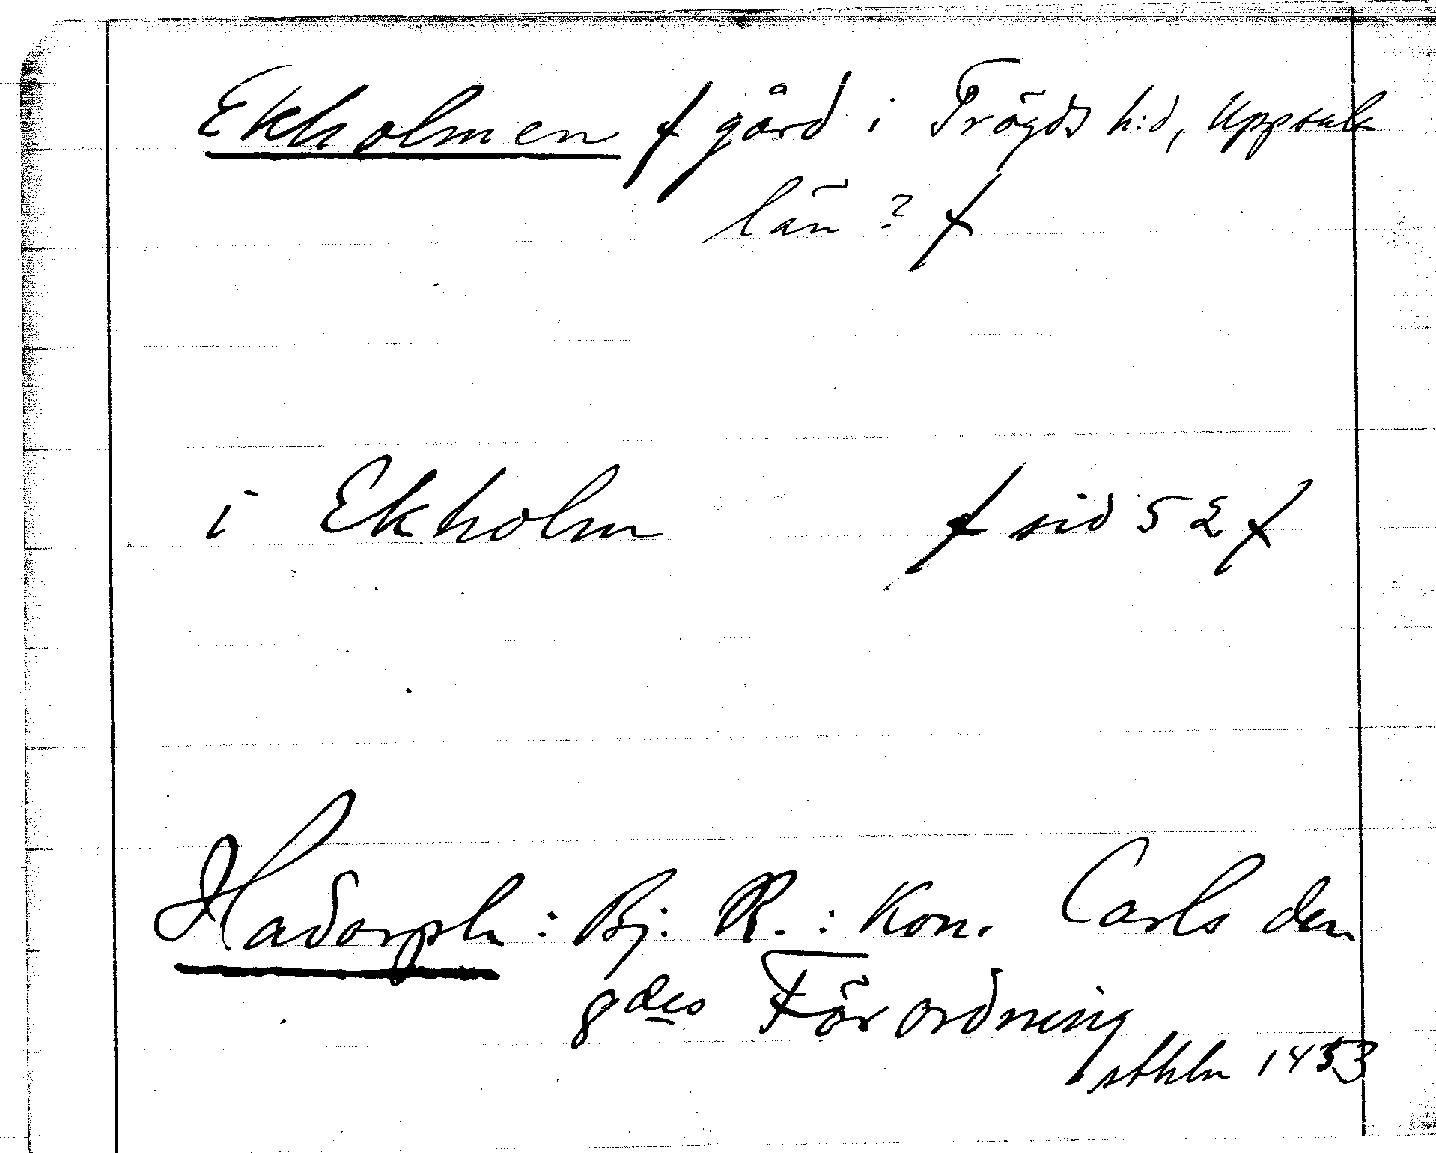 Ekholmen f gård i Trögds h:d, Uppsala
län? f
i Ekholm f sid 52 f
Hadorph: Bj. R.: Kon. Carls den
8des Förordning
sthlm 1453